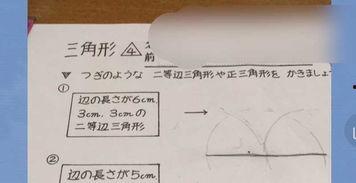 三角形 ④
前
▼ つぎのような 二等辺三角形や正三角形を かきましょ
①
辺の長さが6cm,
3cm, 3cmの
二等辺三角形
→
②
辺の長さが5cm,